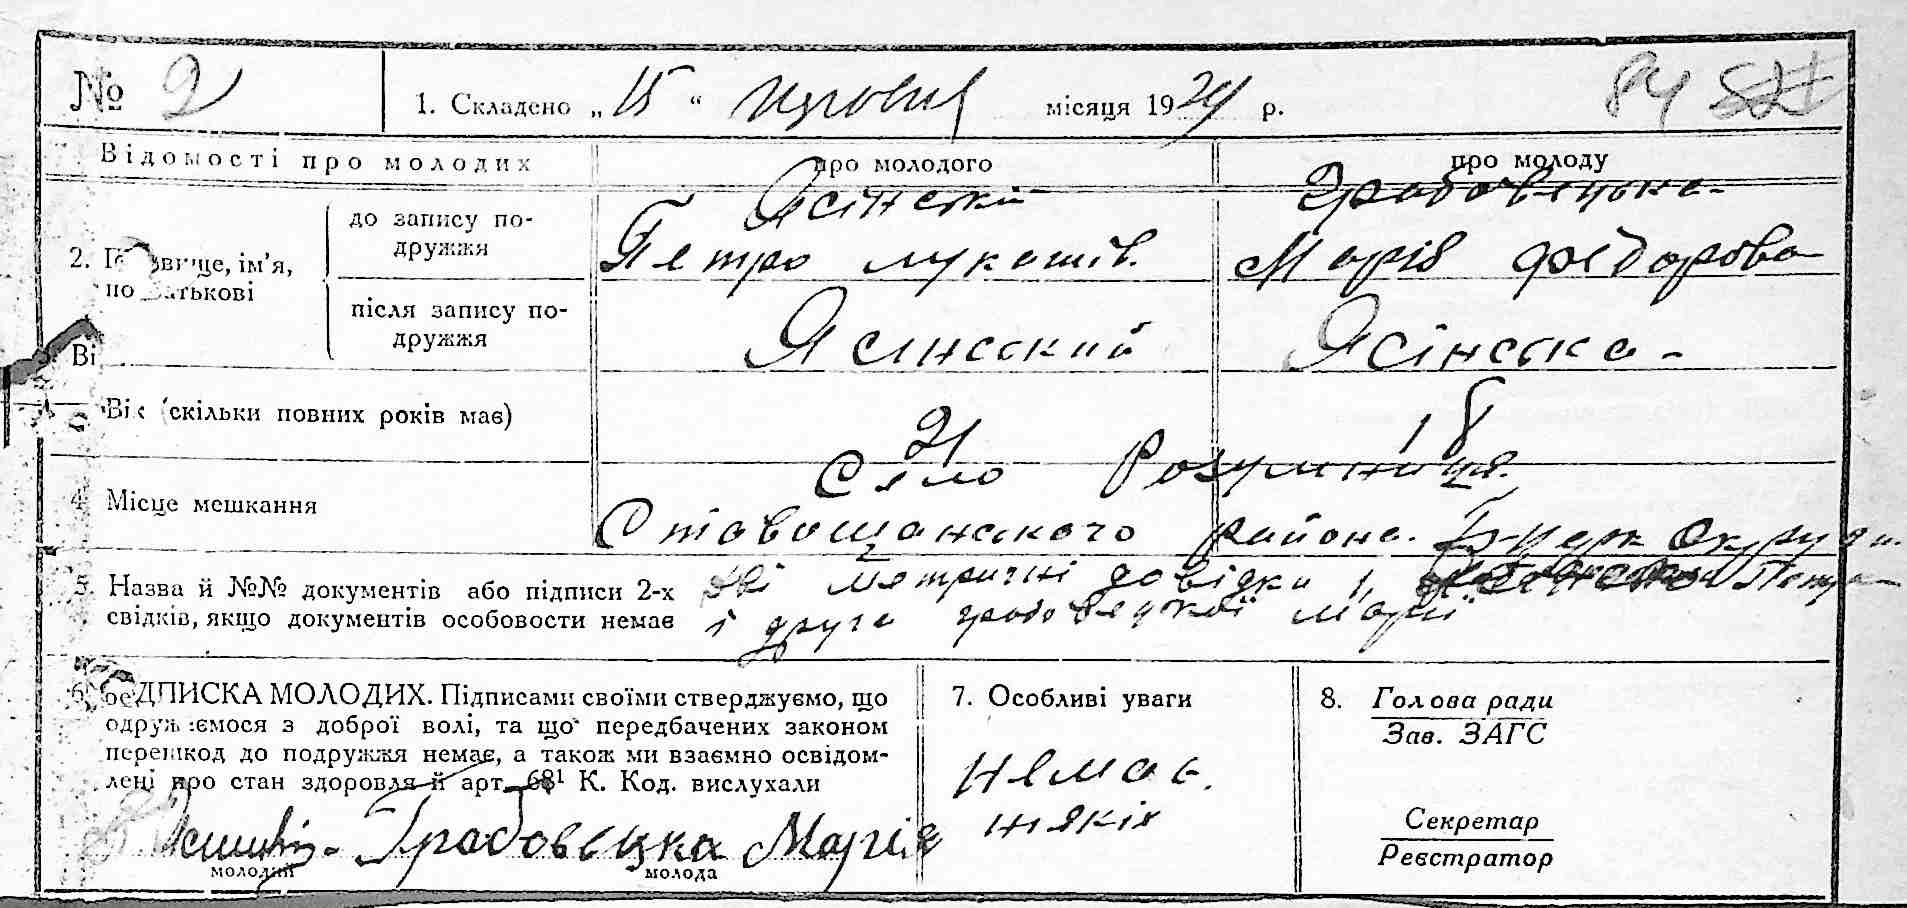 № 2
1. Складено „ 15 “ місяця 1924 р.
84
Відомості про молодих
про молодого
про молоду
2. ще, ім’я, по батькові
до запису подружжя
Ясінській
Петро Лукашів.
Грабовецька
Марія Федорова
після запису подружжя
Ясинский
Ясінська
Ві
Вік (скільки повних років має)
21
18
4. Місце мешкання
Село Розумниця.
Ставищанского района. Б-Церк Округи.
5. Назва й №№ документів або підписи 2-х
свідків, якщо документів особовости немає
Дві метричні довідки 1, Петра
і друга Грабовецкої Марії
6. ПІДПИСКА МОЛОДИХ. Підписами своїми стверджуємо, що
одружуємося з доброї волі, та що передбачених законом
перешкод до подружжя немає, а також ми взаємно освідом-
лені про стан здоровля й арт. 68¹ К. Код. вислухали
Грабовецка Марія
молодий
молода
7. Особливі уваги
Немає.
ніякіх
8. Голова ради
Зав. ЗАГС
Секретар
Реєстратор